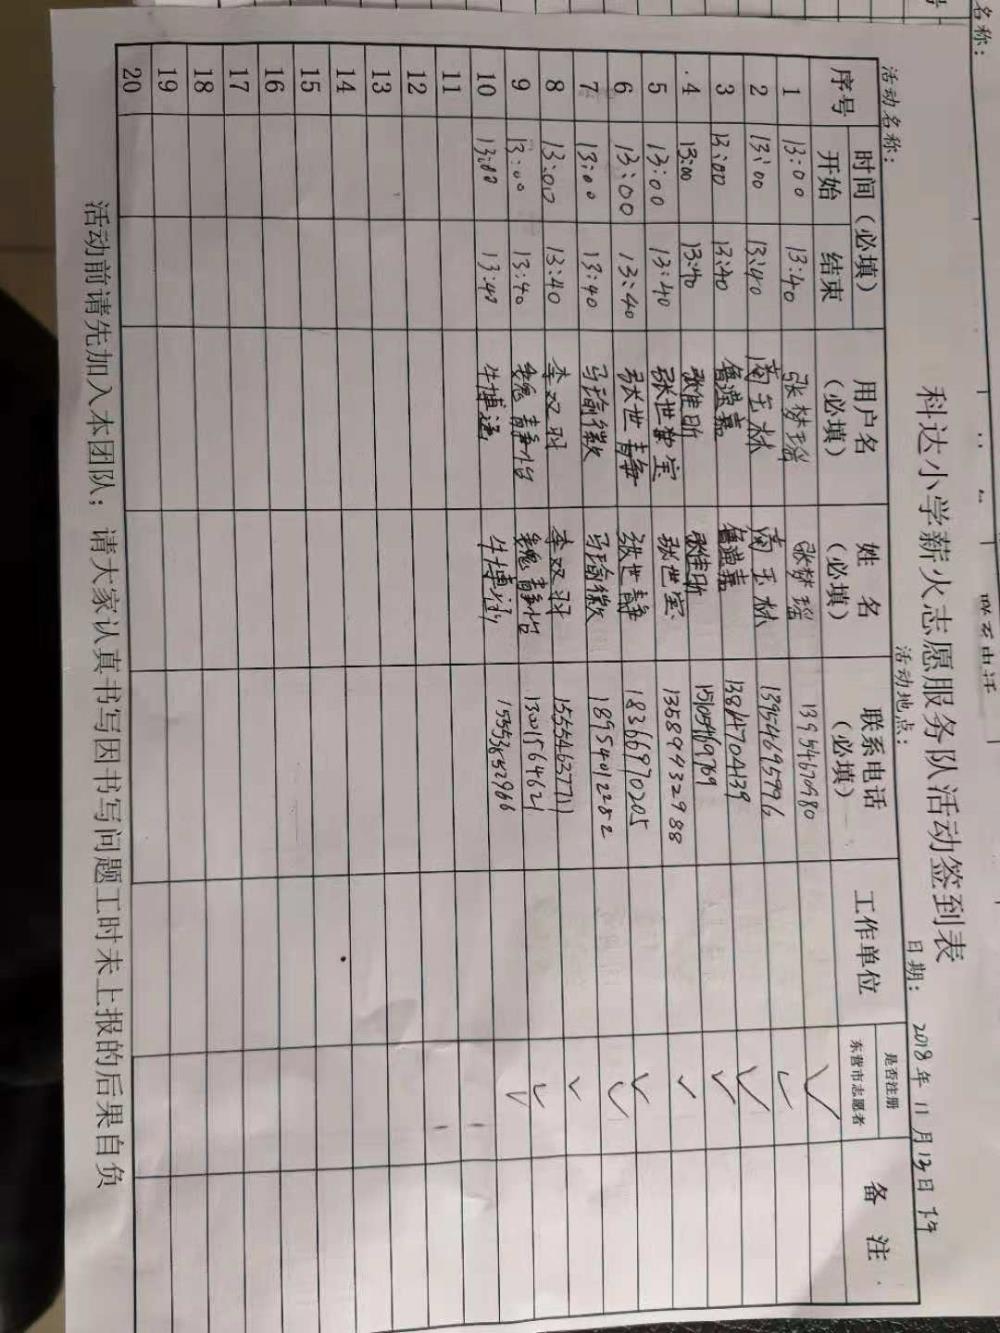 科达小学薪火志愿服务队活动签到表
活动名称： 活动地点： 日期：2018年11月12日 下午
序号 时间（必填） 用户名（必填） 姓 名（必填） 联系电话（必填） 工作单位 是否注册东营市志愿者 备 注
开始 结束
1 13:00 13:40 张梦瑶 张梦瑶 13954670980 ✓
2 13:00 13:40 商玉林 商玉林 13954695996 ✓
3 13:00 13:40 鲁滢嘉 鲁滢嘉 13814704139 ✓
4 13:00 13:40 张佳昕 张佳昕 15105469769 ✓
5 13:00 13:40 张世宝 张世宝 13589932988 ✓
6 13:00 13:40 张世静 张世静 18366970205 ✓
7 13:00 13:40 马瑜徽 马瑜徽 18954012282 ✓
8 13:00 13:40 李双羽 李双羽 15554637711 ✓
9 13:00 13:40 魏静怡 魏静怡 13001564621 ✓
10 13:00 13:40 牛博涵 牛博涵 ✓
11
12
13
14
15
16
17
18
19
20
活动前请先加入本团队；请大家认真书写因书写问题工时未上报的后果自负
名称：